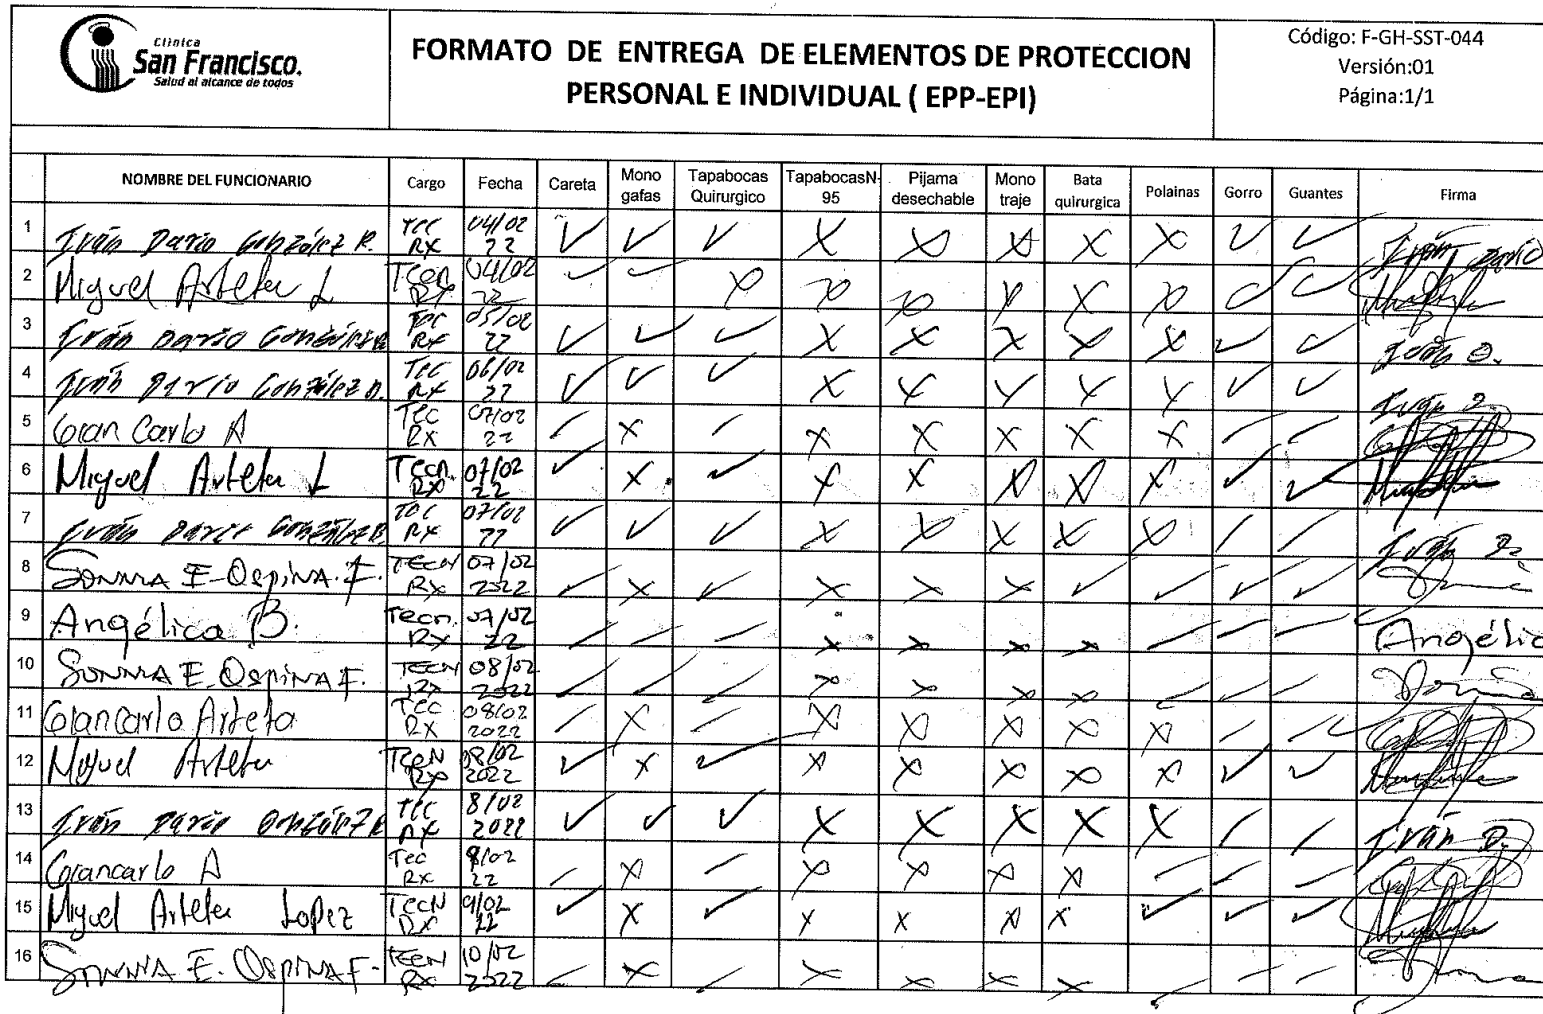 Clínica
San Francisco.
Salud al alcance de todos
FORMATO DE ENTREGA DE ELEMENTOS DE PROTECCION
PERSONAL E INDIVIDUAL ( EPP-EPI)
Código: F-GH-SST-044
Versión:01
Página:1/1
NOMBRE DEL FUNCIONARIO Cargo Fecha Careta Mono gafas Tapabocas Quirurgico TapabocasN-95 Pijama desechable Mono traje Bata quirurgica Polainas Gorro Guantes Firma
1 Iván Dario González R. Tec RX 04/02 22 ✓ ✓ ✓ X X X X X ✓ ✓ Iván Dario
2 Miguel Arteta L Tecn RX 04/02 22 ✓ ✓ X X X X X X ✓ ✓
3 Iván Dario González R Tec RX 05/02 22 ✓ ✓ ✓ X X X X X ✓ ✓ Iván D.
4 Iván Dario González R. Tec RX 06/02 22 ✓ ✓ ✓ X X X X X ✓ ✓ Iván D.
5 Gian Carlo A Tec RX 07/02 22 ✓ X ✓ X X X X X ✓ ✓
6 Miguel Arteta L Tecn. RX 07/02 22 ✓ X ✓ X X X X X ✓ ✓
7 Iván Dario González R. Tec RX 07/02 22 ✓ ✓ ✓ X X X X X ✓ ✓ Iván D.
8 SONNIA E. OSPINA. F. TECN RX 07/02 2022 ✓ X ✓ X X X ✓ ✓ ✓ ✓
9 Angélica B. Tecn. RX 07/02 22 ✓ ✓ ✓ X X X X ✓ ✓ ✓ Angélic
10 SONNIA E. OSPINA F. TECN RX 08/02 2022 ✓ ✓ ✓ X X X X ✓ ✓ ✓
11 Giancarlo Arteta Tec RX 08/02 2022 ✓ X ✓ X X X X X ✓ ✓
12 Miguel Arteta TecN RX 08/02 2022 ✓ X ✓ X X X X X ✓ ✓
13 Iván Dario González R Tec RX 8/02 2022 ✓ ✓ ✓ X X X X X ✓ ✓ Iván D.
14 Giancarlo A Tec RX 22 ✓ X ✓ X X X X ✓ ✓ ✓
15 Miguel Arteta Lopez TecN RX 9/02 22 ✓ X ✓ X X X X ✓ ✓ ✓
16 SONNIA E. OSPINA F. TECN RX 10/02 2022 ✓ X ✓ X X X X ✓ ✓ ✓